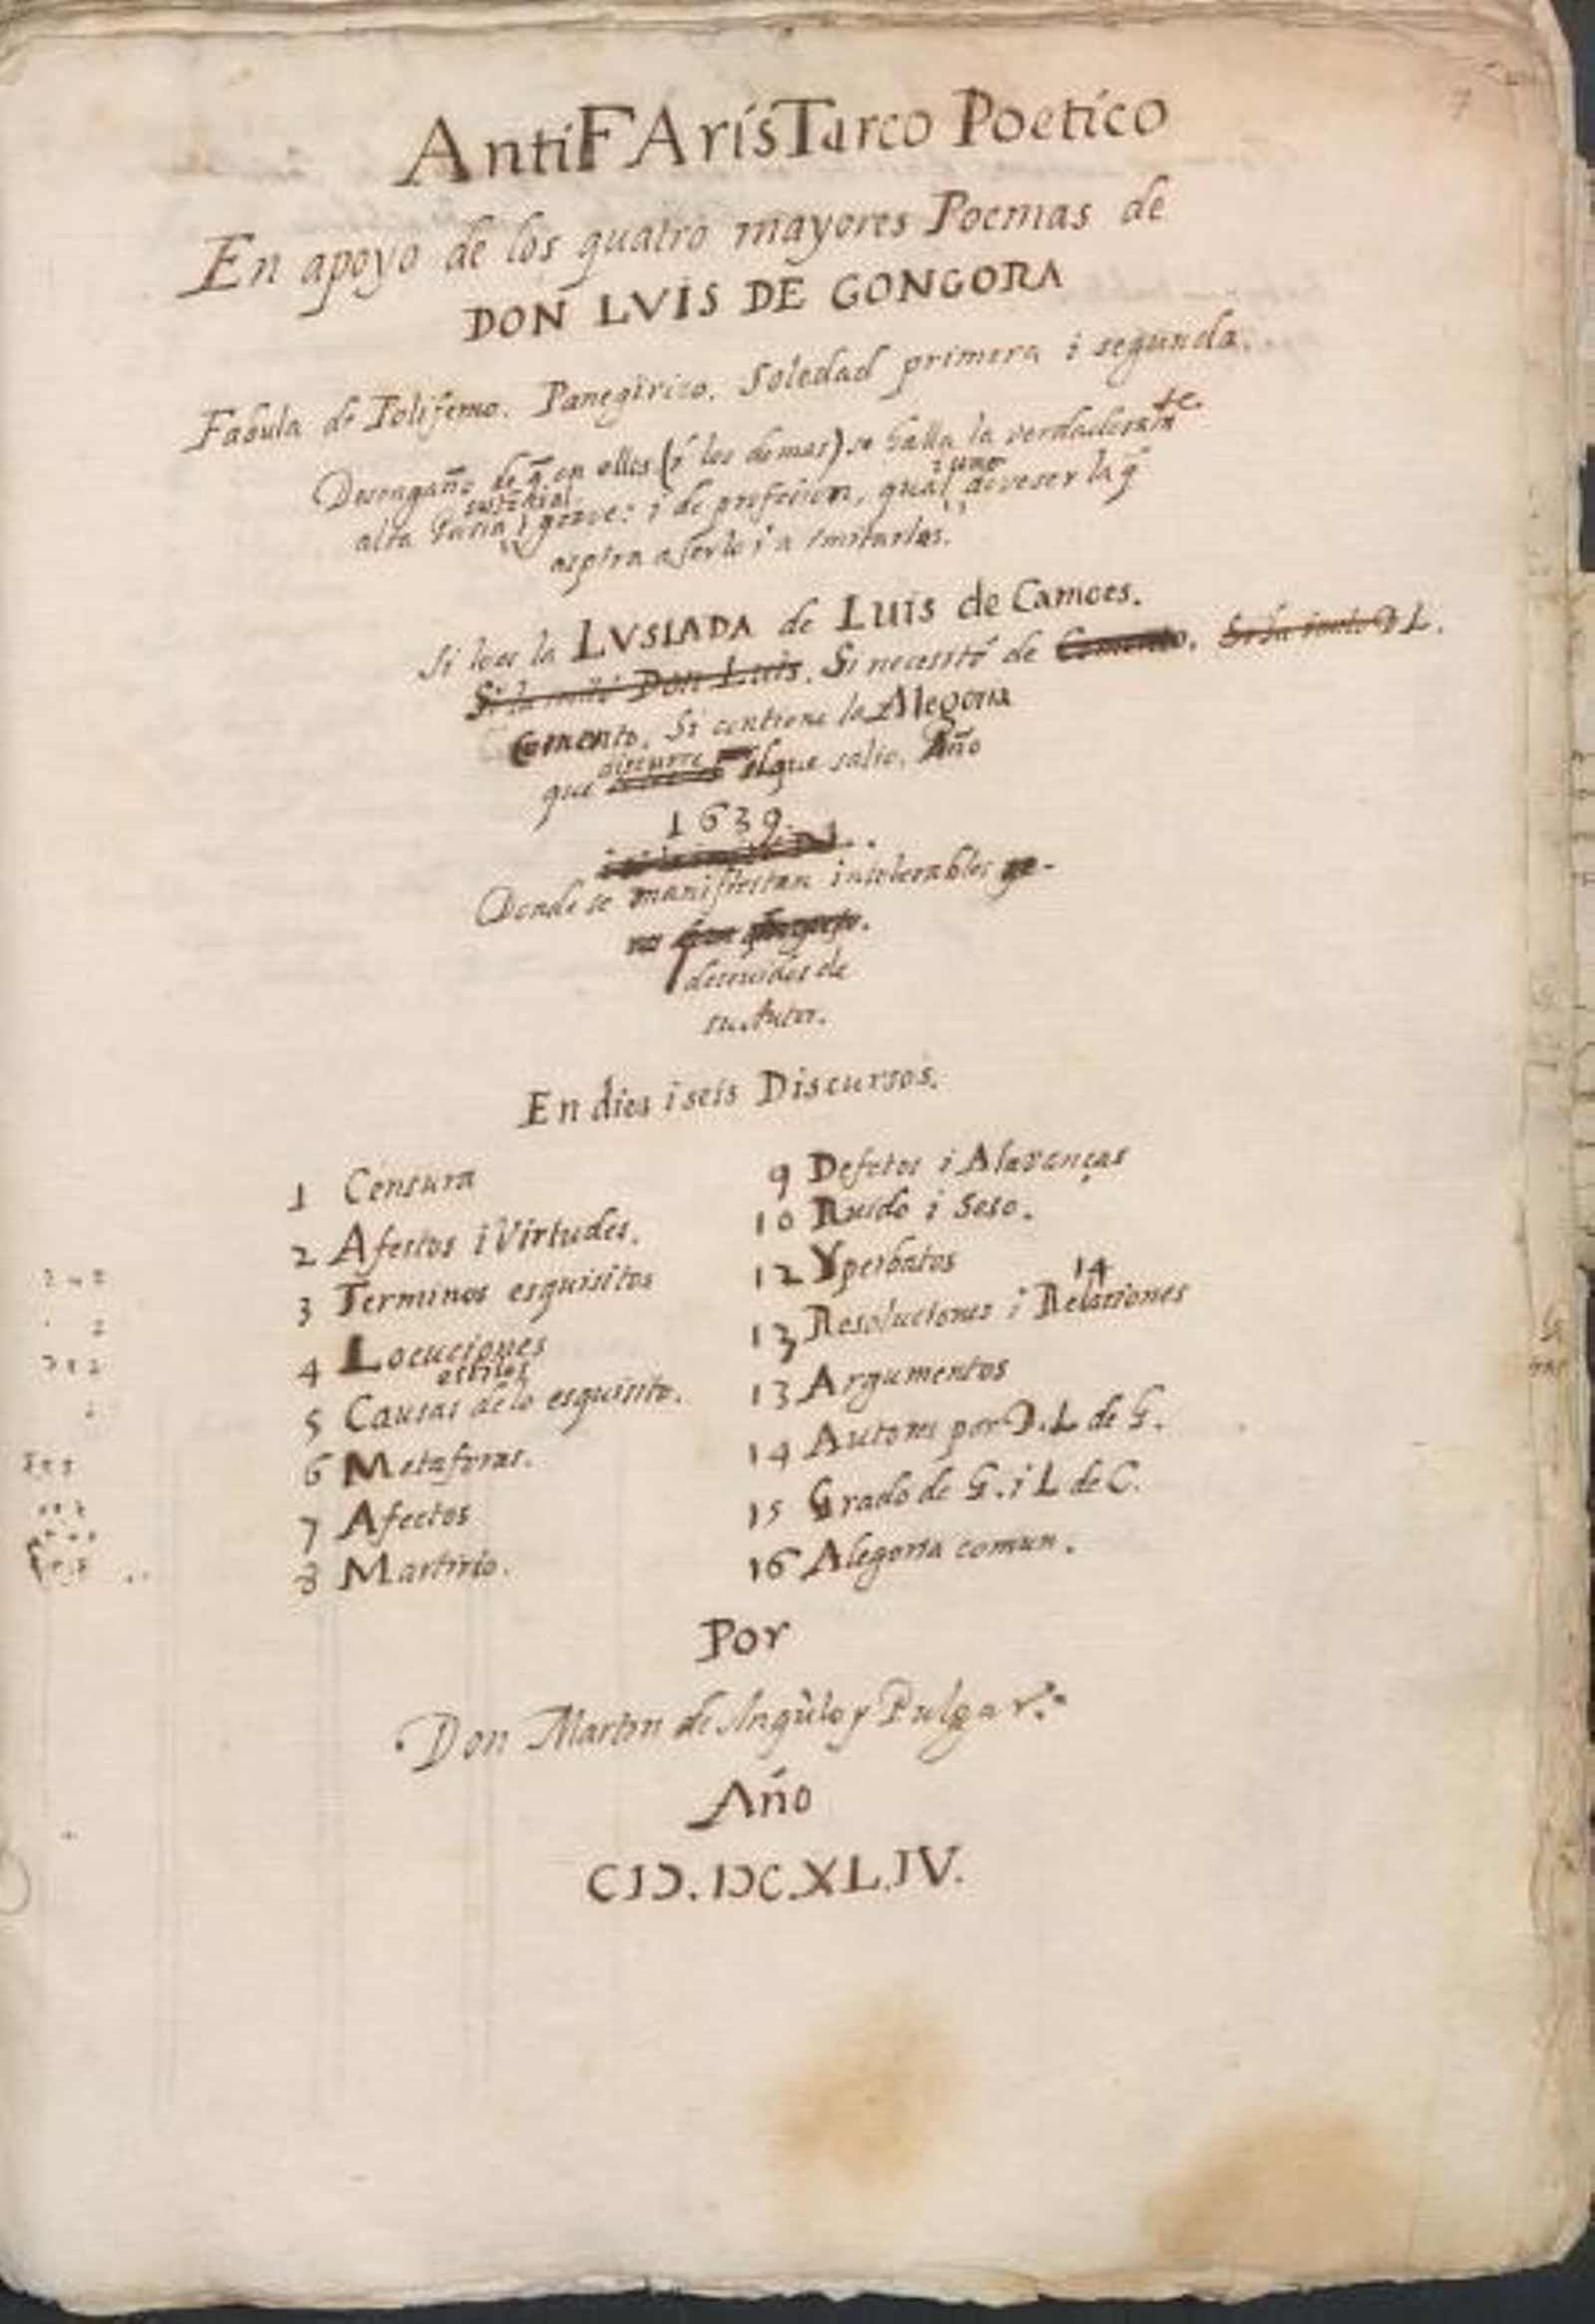 AntiFArisTarco Poetico
En apoyo de los quatro mayores Poemas de
DON LVIS DE GONGORA
Fabula de Polifemo. Panegirico. Soledad primera i segunda.
Desengaño de q̃ en ellos (i los demas) se halla la verdaderamte
sustãcial
i como
alta i grave: i de profesion, qual deve ser la q̃
aspira a serlo i a imitarlas.
Si leer la LVSIADA de Luis de Camoes.
Si la imitó Don Luis. Si necesitó de Comento. Si la imitó D L.
Comento. Si contiene la Alegoria
discurre
que el que salio. Año
1639.
Donde se manifiestan intolerables
descuidos de
su Autor.
En dies i seis Discursos.
1 Censura
2 Afectos i Virtudes.
3 Terminos esquisitos
4 Locuciones
estilos
5 Causas de lo esquisito.
6 Metaforas.
7 Afectos
8 Martirio.
9 Defetos i Alavanças
10 Ruido i Seso.
12 Yperbatos
14
13 Resoluciones i Relaciones
13 Argumentos
14 Autores por D. L de G.
15 Grado de G. i L de C.
16 Alegoria comun.
Por
Don Martin de Angùlo y Pulgar.
Año
CIↃ.IↃC.XL.IV.